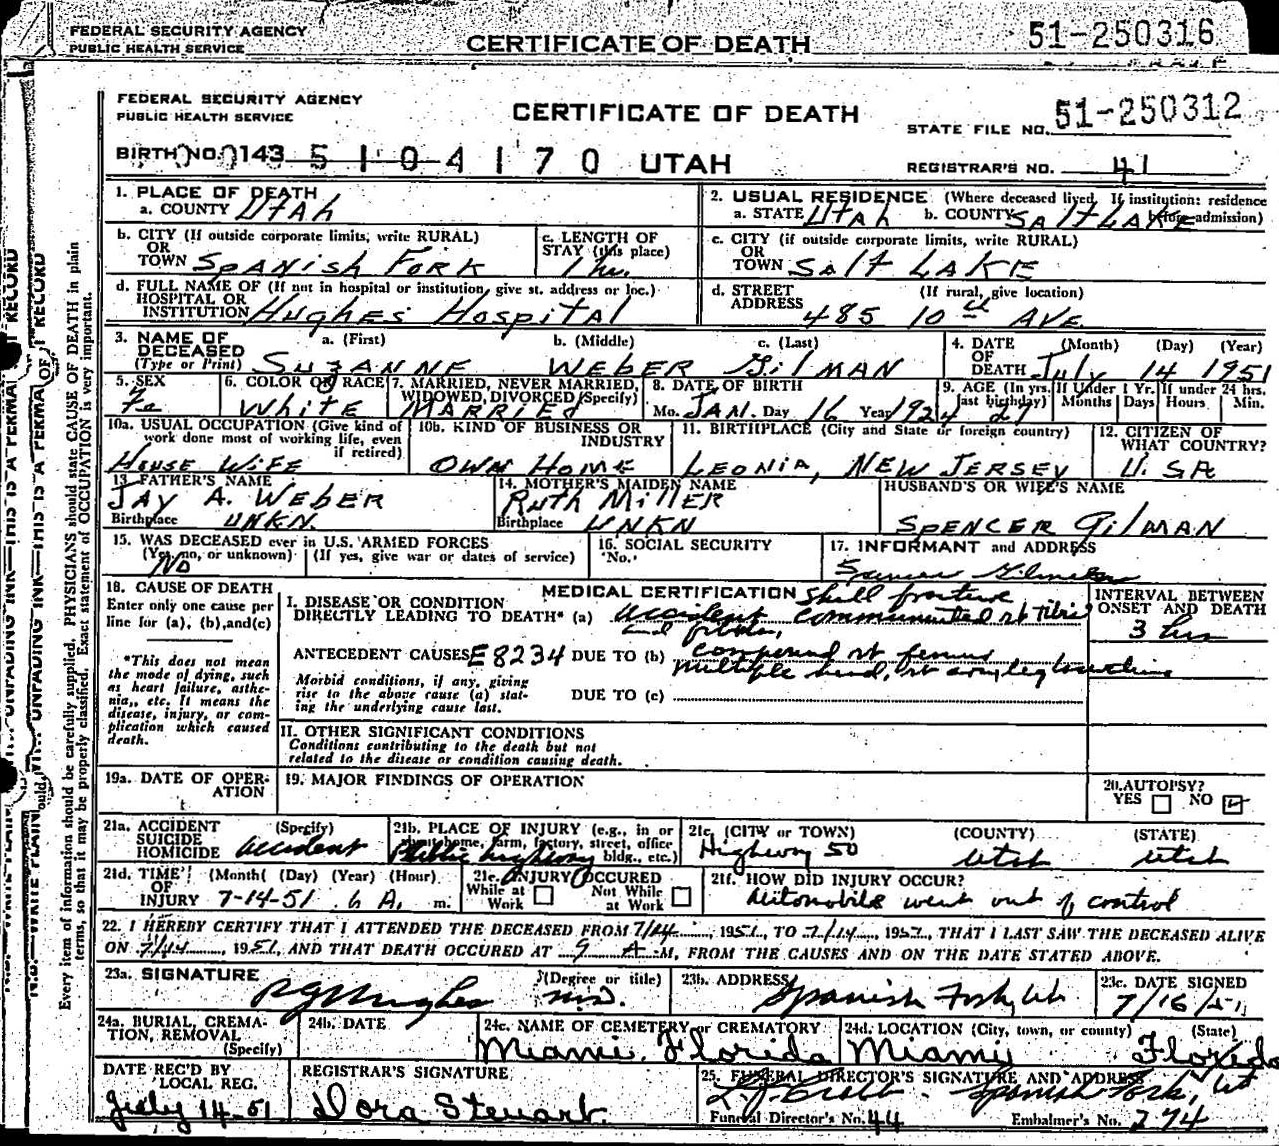 FEDERAL SECURITY AGENCY
PUBLIC HEALTH SERVICE
CERTIFICATE OF DEATH
51-250316
FEDERAL SECURITY AGENCY
PUBLIC HEALTH SERVICE
CERTIFICATE OF DEATH
STATE FILE NO. 51-250312
BIRTH NO. 143 5 1 0 4 1 7 0 UTAH
REGISTRAR'S NO. 41
1. PLACE OF DEATH
a. COUNTY Utah
2. USUAL RESIDENCE (Where deceased lived. If institution: residence
a. STATE Utah b. COUNTY SALT LAKE admission)
b. CITY (If outside corporate limits, write RURAL)
OR
TOWN Spanish Fork
c. LENGTH OF
STAY (this place)
1 hr.
c. CITY (if outside corporate limits, write RURAL)
OR
TOWN SAlt LAKE
d. FULL NAME OF (If not in hospital or institution, give st. address or loc.)
HOSPITAL OR
INSTITUTION Hughes Hospital
d. STREET (If rural, give location)
ADDRESS 485 10th AVE.
3. NAME OF
DECEASED
(Type or Print)
a. (First) b. (Middle) c. (Last)
SUZANNE WEBER GilMAN
4. DATE (Month) (Day) (Year)
OF
DEATH July 14 1951
5. SEX
Fe
6. COLOR OR RACE
White
7. MARRIED, NEVER MARRIED,
WIDOWED, DIVORCED (Specify)
MARRIED
8. DATE OF BIRTH
Mo. JAN. Day 16 Year 1924
9. AGE (In yrs. last birthday) 27
If Under 1 Yr. Months Days
If under 24 hrs. Hours Min.
10a. USUAL OCCUPATION (Give kind of
work done most of working life, even
if retired)
House Wife
10b. KIND OF BUSINESS OR
INDUSTRY
OWN HOME
11. BIRTHPLACE (City and State or foreign country)
LEONIA, NEW JERSEY
12. CITIZEN OF
WHAT COUNTRY?
U.SA
13. FATHER'S NAME
JAY A. WEBER
Birthplace UNKN.
14. MOTHER'S MAIDEN NAME
Ruth Miller
Birthplace UNKN
HUSBAND'S OR WIFE'S NAME
SPENCER GilMAN
15. WAS DECEASED ever in U.S. ARMED FORCES
(Yes, no, or unknown) (If yes, give war or dates of service)
No
16. SOCIAL SECURITY
No.
17. INFORMANT and ADDRESS
18. CAUSE OF DEATH
Enter only one cause per
line for (a), (b), and (c)
*This does not mean
the mode of dying, such
as heart failure, asthe-
nia, etc. It means the
disease, injury, or com-
plication which caused
death.
MEDICAL CERTIFICATION Skull fracture
I. DISEASE OR CONDITION
DIRECTLY LEADING TO DEATH* (a) accident comminuted rt tibia
ANTECEDENT CAUSES E8234 DUE TO (b) compound rt femur
multiple head, rt arm, leg
Morbid conditions, if any, giving
rise to the above cause (a) stat-
ing the underlying cause last.
DUE TO (c)
INTERVAL BETWEEN
ONSET AND DEATH
3 hrs
II. OTHER SIGNIFICANT CONDITIONS
Conditions contributing to the death but not
related to the disease or condition causing death.
19a. DATE OF OPER-
ATION
19. MAJOR FINDINGS OF OPERATION
20. AUTOPSY?
YES NO
21a. ACCIDENT (Specify)
SUICIDE
HOMICIDE accident
21b. PLACE OF INJURY (e.g., in or
home, farm, factory, street, office
bldg., etc.)
Public highway
21c. (CITY or TOWN) (COUNTY) (STATE)
Highway 50 Utah Utah
21d. TIME (Month) (Day) (Year) (Hour)
OF
INJURY 7-14-51 6 A. m.
21e. INJURY OCCURED
While at Work Not While at Work
21f. HOW DID INJURY OCCUR?
Automobile went out of control
22. I HEREBY CERTIFY THAT I ATTENDED THE DECEASED FROM 7/14, 1951, TO 7/14, 1951, THAT I LAST SAW THE DECEASED ALIVE
ON 7/14, 1951, AND THAT DEATH OCCURED AT 9 A M, FROM THE CAUSES AND ON THE DATE STATED ABOVE.
23a. SIGNATURE (Degree or title)
Hughes M.D.
23b. ADDRESS
Spanish Fork, Ut
23c. DATE SIGNED
7/16/51
24a. BURIAL, CREMA-
TION, REMOVAL
(Specify)
24b. DATE
24c. NAME OF CEMETERY or CREMATORY
Miami, Florida
24d. LOCATION (City, town, or county) (State)
Miami Florida
DATE REC'D BY
LOCAL REG.
July 14-51
REGISTRAR'S SIGNATURE
Dora Stewart
25. FUNERAL DIRECTOR'S SIGNATURE AND ADDRESS
Spanish Fork, Ut
Funeral Director's No. 44 Embalmer's No. 274
Every item of information should be carefully supplied. PHYSICIANS should state CAUSE OF DEATH in plain
terms, so that it may be properly classified. Exact statement of OCCUPATION is very important.
UNFADING INK—THIS IS A PERMANENT RECORD